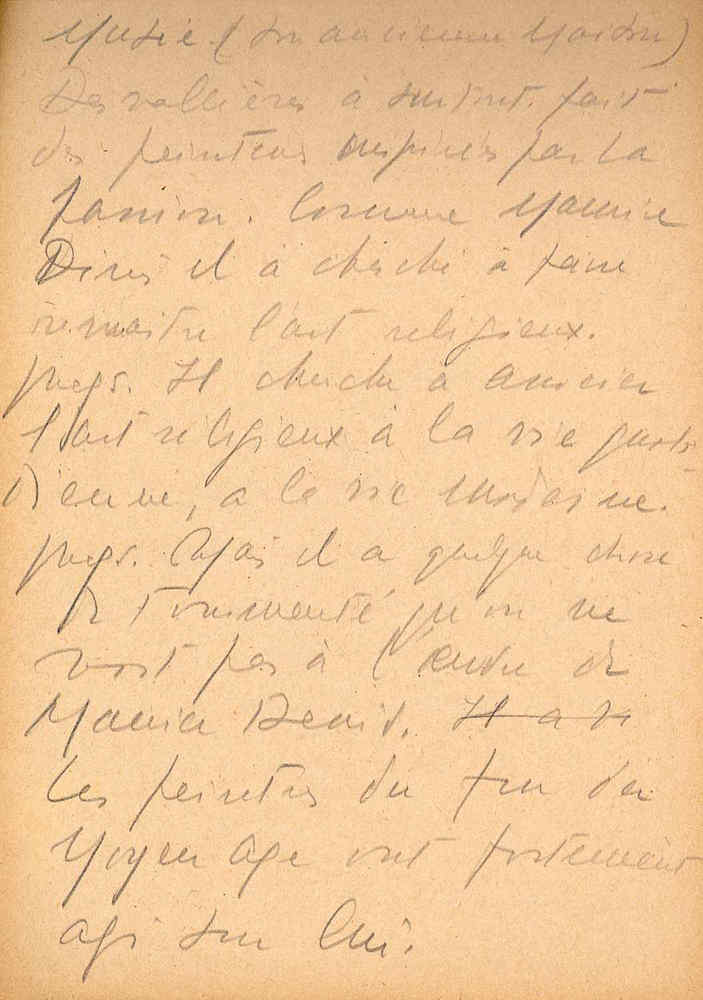 Musée (son ancienne Maison)
Desvallières à surtout fait
des peintures inspirées par la
Passion. Comme Maurice
Denis il a cherché à faire
renaitre l'art religieux.
Il cherche à associer
l'art religieux à la vie quoti
Dienne, a la vie moderne.
Mais il a quelque chose
de tourmenté qu'on ne
voit pas à l'œuvre de
Maurice Denis. Il a
Les peintres du fin du
Moyen age ont fortement
agi sur lui.